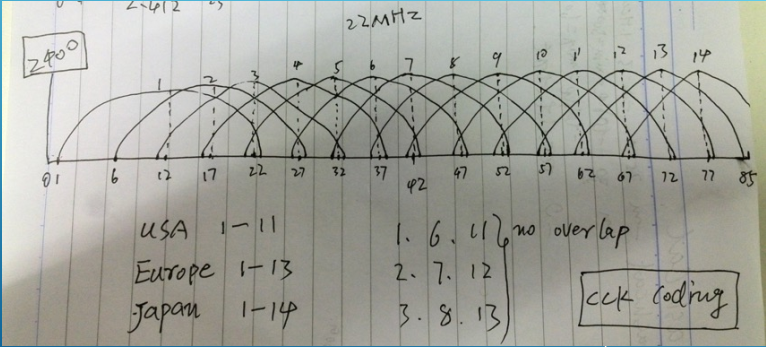 2.412
22MHz
2400
1 2 3 4 5 6 7 8 9 10 11 12 13 14
01 6 12 17 22 27 32 37 42 47 52 57 62 67 72 77 85
USA 1-11
Europe 1-13
Japan 1-14
1. 6. 11
2. 7. 12
3. 8. 13
no overlap
cck coding